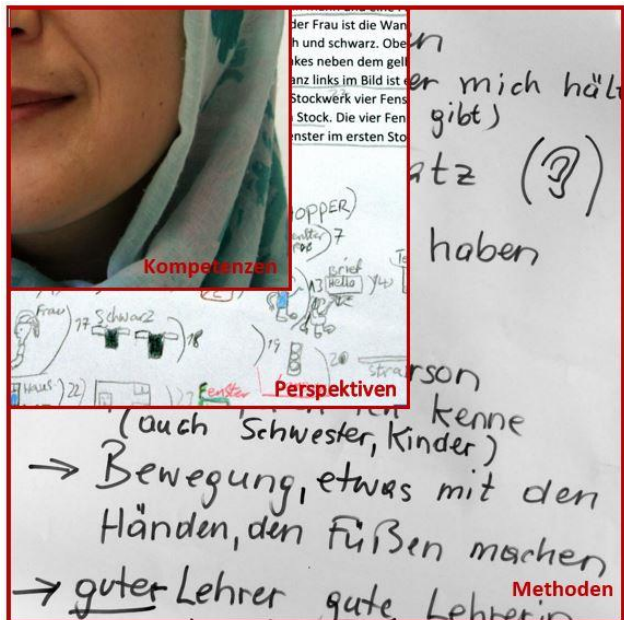 der Frau ist die Wan
h und schwarz. Obe
kes neben dem gel
nz links im Bild ist e
Stockwerk vier Fens
Stock. Die vier Fen
enster im ersten Sto
Kompetenzen
OPPER)
nster 7
13 Brief
Hello
Frau
17 Schwarz
18
19
20
stra
Haus
22)
Fenster
Perspektiven
er mich häl
gibt)
atz (?)
haben
rson
kenne
(auch Schwester, Kinder)
→ Bewegung, etwas mit den
Händen, den Füßen machen
→ guter Lehrer gute Lehrerin
Methoden